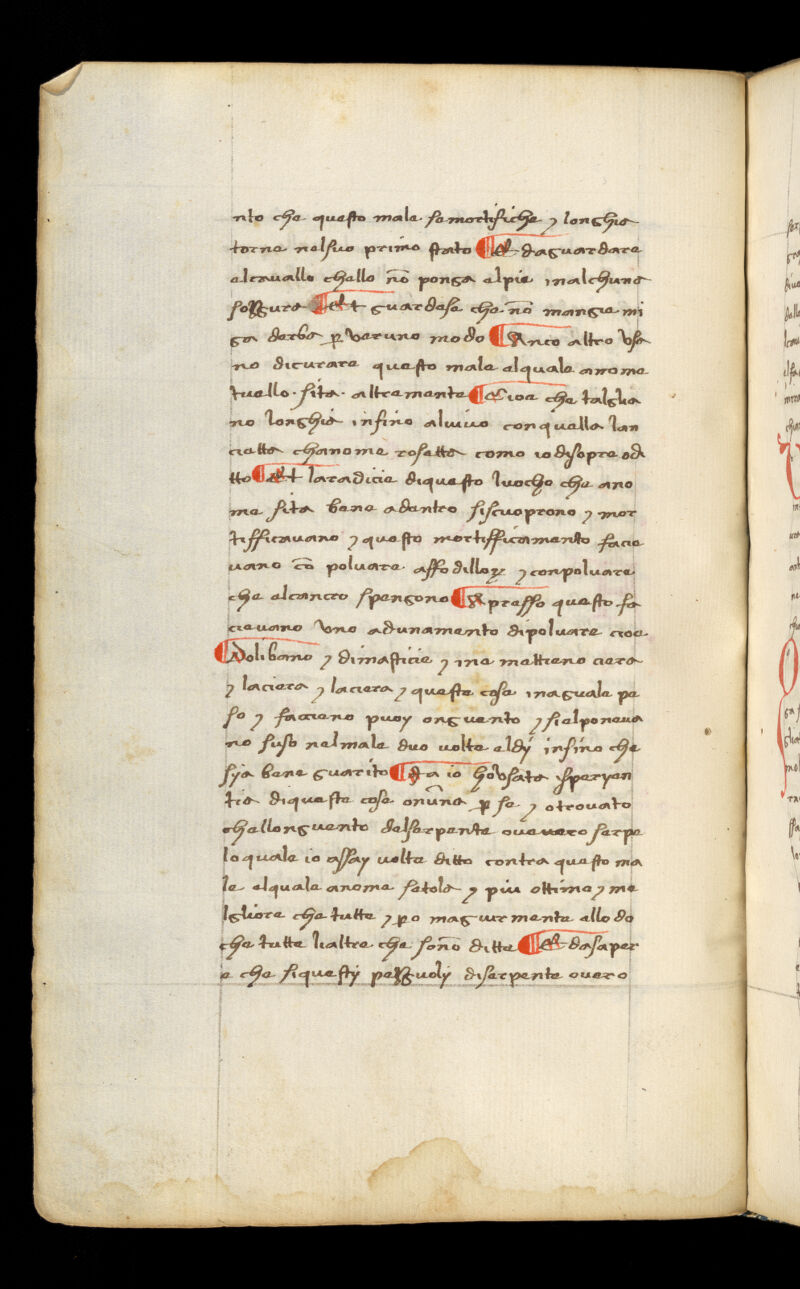 nto che questo male. se mortifiche ⁊ longhia
torne nelsuo primo stato ¶ Et daguardare
alcauallo challo nō ponga elpie inalchuna
sozzura ¶ Et guardase che nō mangie mi
ga derba ꝑ veruno modo ¶ Anco altro vsa
no dicurare questo male alquale anome
tuello. fita. altramente ¶ Cioe che talglia
no longhia infino aluiuo conquella lan
cietta chanome rosetta como iodisopra od
tto ¶ Et laradicie diquesto luocho che ano
me fita bene adentro siscuoprono ⁊ mor
tifficauano ⁊ questo mortifficamento facie
uano cō poluare affodilloꝝ ⁊ conpoluare
che alcancro spengono ¶ Apresso questo fa
cieuano vno adunamento dipoluare cioe
¶ Dolibano ⁊ dimasticie ⁊ ine mettieno ciera
⁊ laciera ⁊ laciera ⁊ queste cose inaguale pe
so ⁊ facieno puoy onguento ⁊ sialponeua
no suso nelmale duo uolte aldy infino che
sya bene guarito ¶ Ma io hovsata speryen
tia diqueste cose onūna ꝑ se ⁊ otrouato
chellonguento delserpente ouevero serpe
loquale io assay uolte ditto contra questo ma
le alquale anome fetola ⁊ piu ottimo ⁊ me
lgliore che tutte ⁊ ꝑo magiurmente allodo
che tutte laltre che sonō ditte ¶ Et dasaper
e che siquesty pezzuoly diserpente ouero